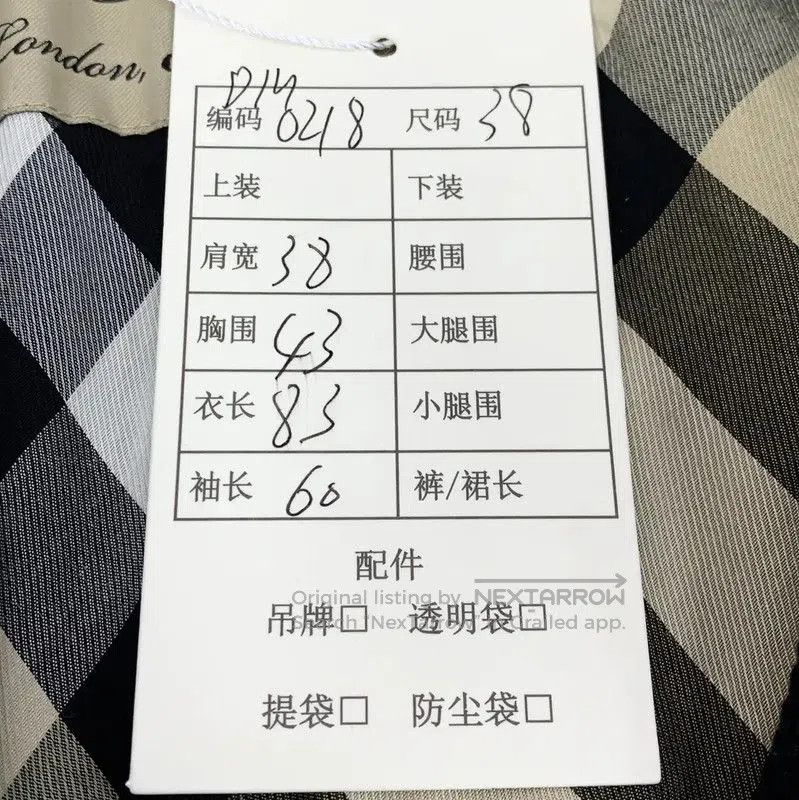 London,
DIY
编码 0218 尺码 38
上装 下装
肩宽 38 腰围
胸围 43 大腿围
衣长 83 小腿围
袖长 60 裤/裙长
配件
Original listing by NEXTARROW
吊牌□ 透明袋□
Search 'NexTarrow' Grailed app.
提袋□ 防尘袋□